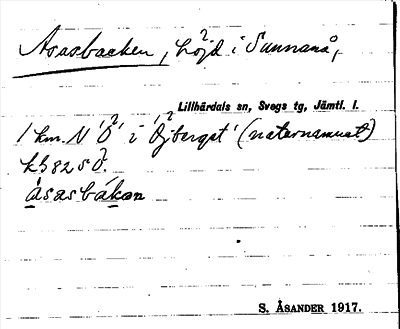 Åsasbacken, höjd i Sunnanå,
Lillhärdals sn, Svegs tg, Jämtl. l.
1 km. N 'Ö' i 'Öjbergst' (naturnamnet)
k382 S Ö.
åsasbákan
S. ÅSANDER 1917.